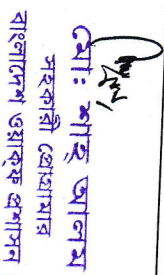 মোঃ শাহ্ আলম
সহকারী প্রোগ্রামার
বাংলাদেশ ওয়াক্‌ফ প্রশাসন